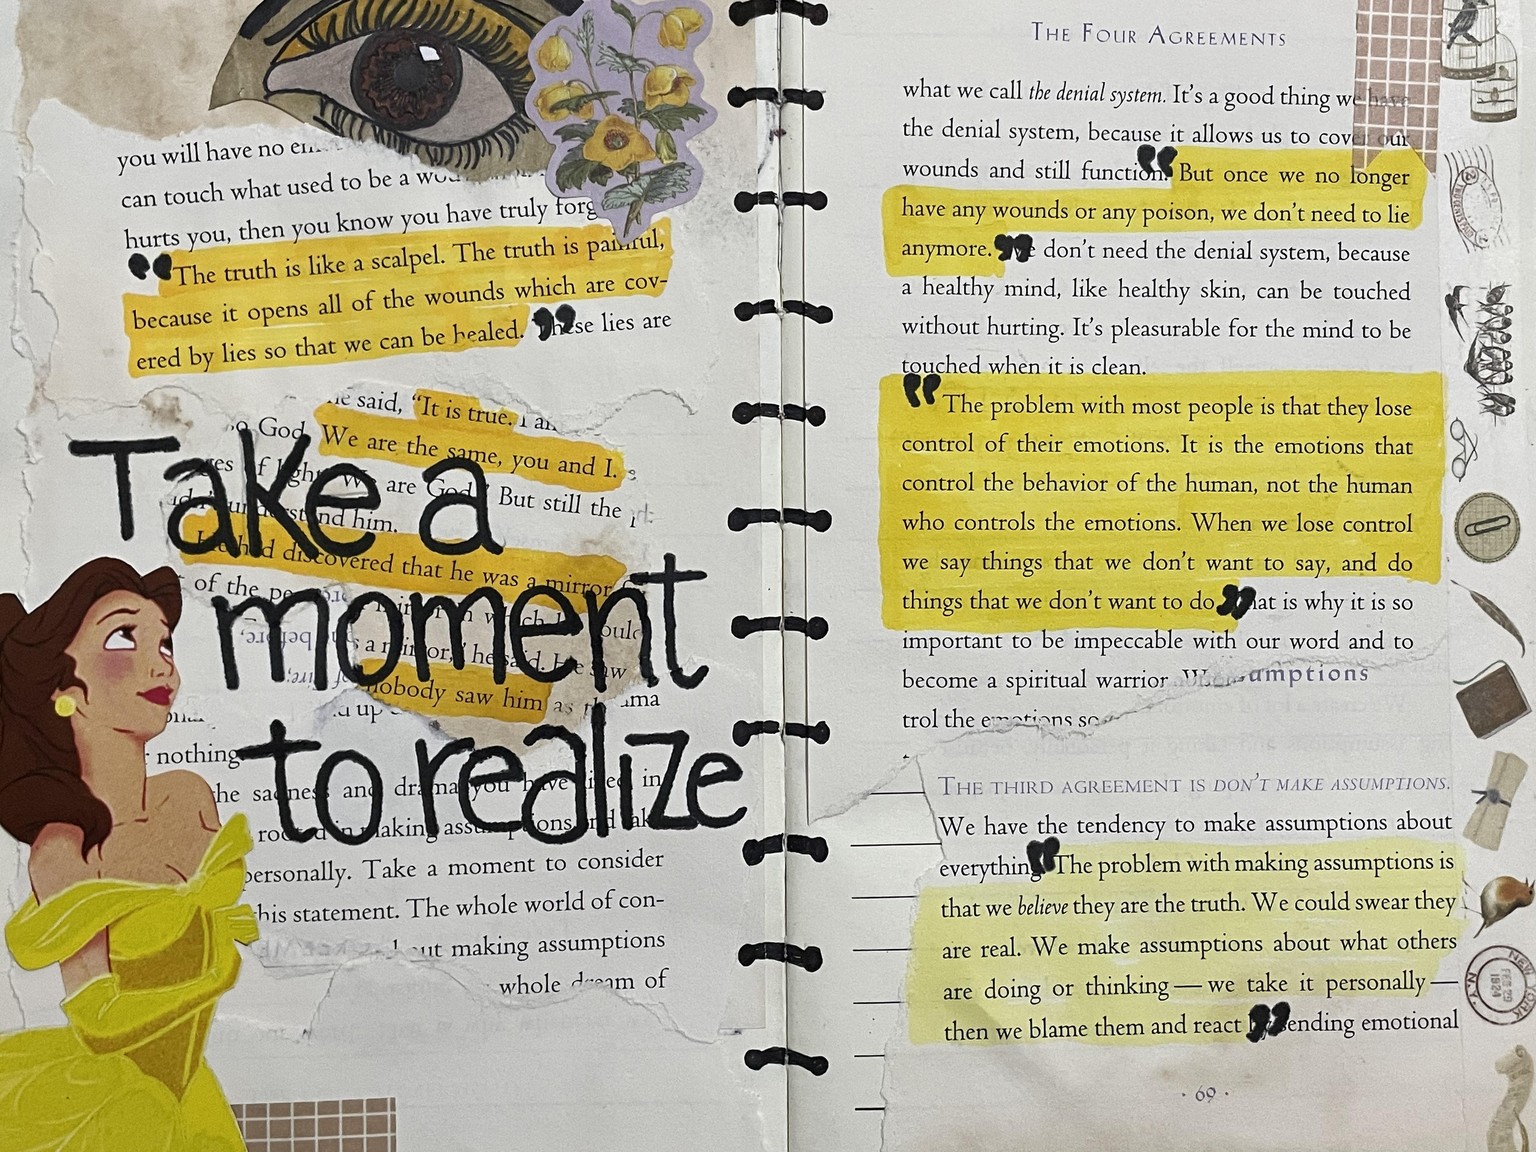 you will have no
can touch what used to be a
hurts you, then you know you have truly forg
“The truth is like a scalpel. The truth is painful,
because it opens all of the wounds which are cov-
ered by lies so that we can be healed.” These lies are
he said, “It is true. I am
God. We are the same, you and I.
of light. We are God.” But still the
understand him.
He had discovered that he was a mirror
of the
a mirror,” he said.
nobody saw him as
up
nothing
the sadness and drama you have lived in
rooted in making assumptions and
personally. Take a moment to consider
this statement. The whole world of con-
out making assumptions
whole dream of
Take a
moment
to realize
THE FOUR AGREEMENTS
what we call the denial system. It's a good thing we have
the denial system, because it allows us to cover our
wounds and still function. “But once we no longer
have any wounds or any poison, we don't need to lie
anymore.” We don't need the denial system, because
a healthy mind, like healthy skin, can be touched
without hurting. It's pleasurable for the mind to be
touched when it is clean.
“The problem with most people is that they lose
control of their emotions. It is the emotions that
control the behavior of the human, not the human
who controls the emotions. When we lose control
we say things that we don't want to say, and do
things that we don't want to do.” That is why it is so
important to be impeccable with our word and to
become a spiritual warrior. umptions
trol the emotions so
THE THIRD AGREEMENT IS DON'T MAKE ASSUMPTIONS.
We have the tendency to make assumptions about
everything “The problem with making assumptions is
that we believe they are the truth. We could swear they
are real. We make assumptions about what others
are doing or thinking — we take it personally —
then we blame them and react” by sending emotional
· 69 ·
NEW YORK
FEB 29
1924
N.Y.